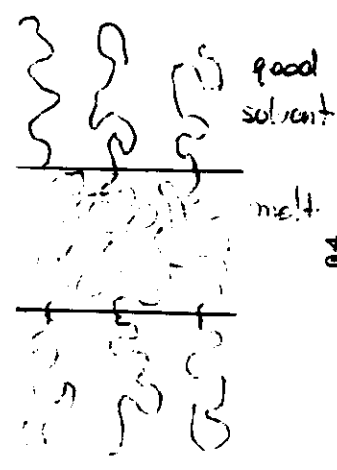 good
solvent
melt